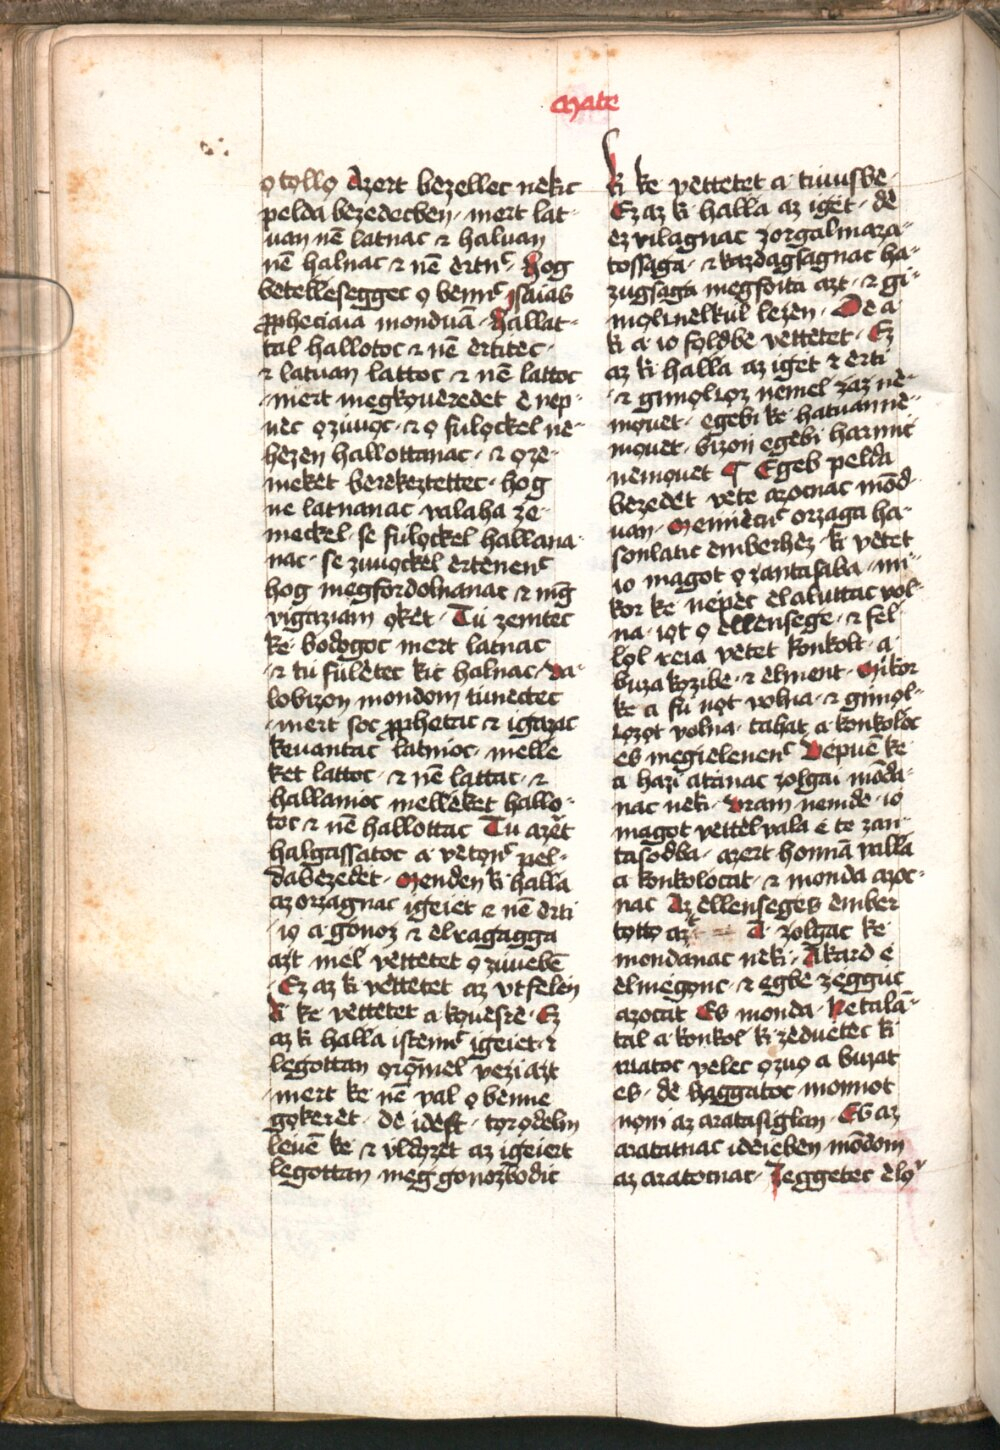 Mate
o tollo Azert bezellec nekic
pelda bezedecben · mert lat-
uan nē latnac ⁊ haluan
nē halnac ⁊ nē ertnc̄ · Hog
betelleseggec o bennc̄ Isaias
ꝓpheciaia monduā · Hallat-
tal hallotoc ⁊ nē ertitec ·
⁊ latuan lattoc ⁊ nē lattoc
· mert megkoueredet e nep-
nec o ziuuoc · ⁊ o fulockel ne-
hezen hallottanac · ⁊ o ze-
meket berekeztettec · hog
ne latnanac valaha ze-
meckel · se fulockel hallana-
nac · se ziuuockel ertenenc̄
hog megfordolnanac ⁊ mḡ
vigaziam oket · Tu zemtec
ke · bodogoc mert latnac
· ⁊ tu fuletec kic halnac · Va-
lobizon mondom tunectec
· mert soc ꝓphetac ⁊ igazac
keuantac latnioc · melle-
ket lattoc · ⁊ nē lattac · ⁊
hallanioc melleket hallo-
toc ⁊ nē hallottac Tu azert
halgassatoc a vetonc̄ pel-
dabezedet · Menden ki halla
az orzagnac igeiet ⁊ nē erti
· io a gonoz ⁊ elragagga
azt mel vettetet o ziuueben
· Ez az ki vettetet az vt felen
A ke vettetet a kouesre · Ez
az ki halla istennc̄ igeiet · ⁊
legottan orommel vezi azt
· mert ke nē val o benne
gokeret · de ideſt · torodelm
leuē ke ⁊ vldozet az igeiert
legottan meg gonozbodic
Ki ke vettetet a tiuusbe ·
Ez az ki halla az iget · de
ez vilagnac zorgalmaza-
tossaga · ⁊ kazdagsagnac ha-
zugsaga megfoita azt · ⁊ gi-
molcnelkul lezen · De a
ki a io foldbe vettetet · Ez
az ki halla az iget ⁊ erti
· ⁊ gimolcoz nemel zaz ne-
mouet · egebi ke hatuan ne-
mouet · bizon egebi harmic
nemouet ¶ Egeb pelda
bezedet vete azocnac mōd-
uan · Menniecnc̄ orzaga ha-
sonlatic emberhez ki vetet
io magot o zantasaba · mi-
kor ke nepec elaluttac vol-
na · iot o ellensege · ⁊ fel-
lol reia vetet konkolt · a
buza kozibe · ⁊ elment · Mikor
ke a fu not volna · ⁊ gimol-
cozot volna · tahat a konkoloc
es megielenenc̄ Vepuē ke
a hazi atanac zolgai mōda-
nac neki · Vram nemde · io
magot vettel vala e te zan-
tasodba · azert honnā valla
a konkolocat · ⁊ monda azoc-
nac Az ellenseges ember
totto azt A zolgac ke
mondanac neki · Akard e
elmegonc · ⁊ egbe zegguc
azocat Es monda · Netalā-
tal a konkol ki zeduetec ki
riatoc velec ozuo a buzat
es · de haggatoc monnot
noni az aratasiglan · Es az
aratatnac ideieben mōdom
az aratocnac · Zeggetec elo